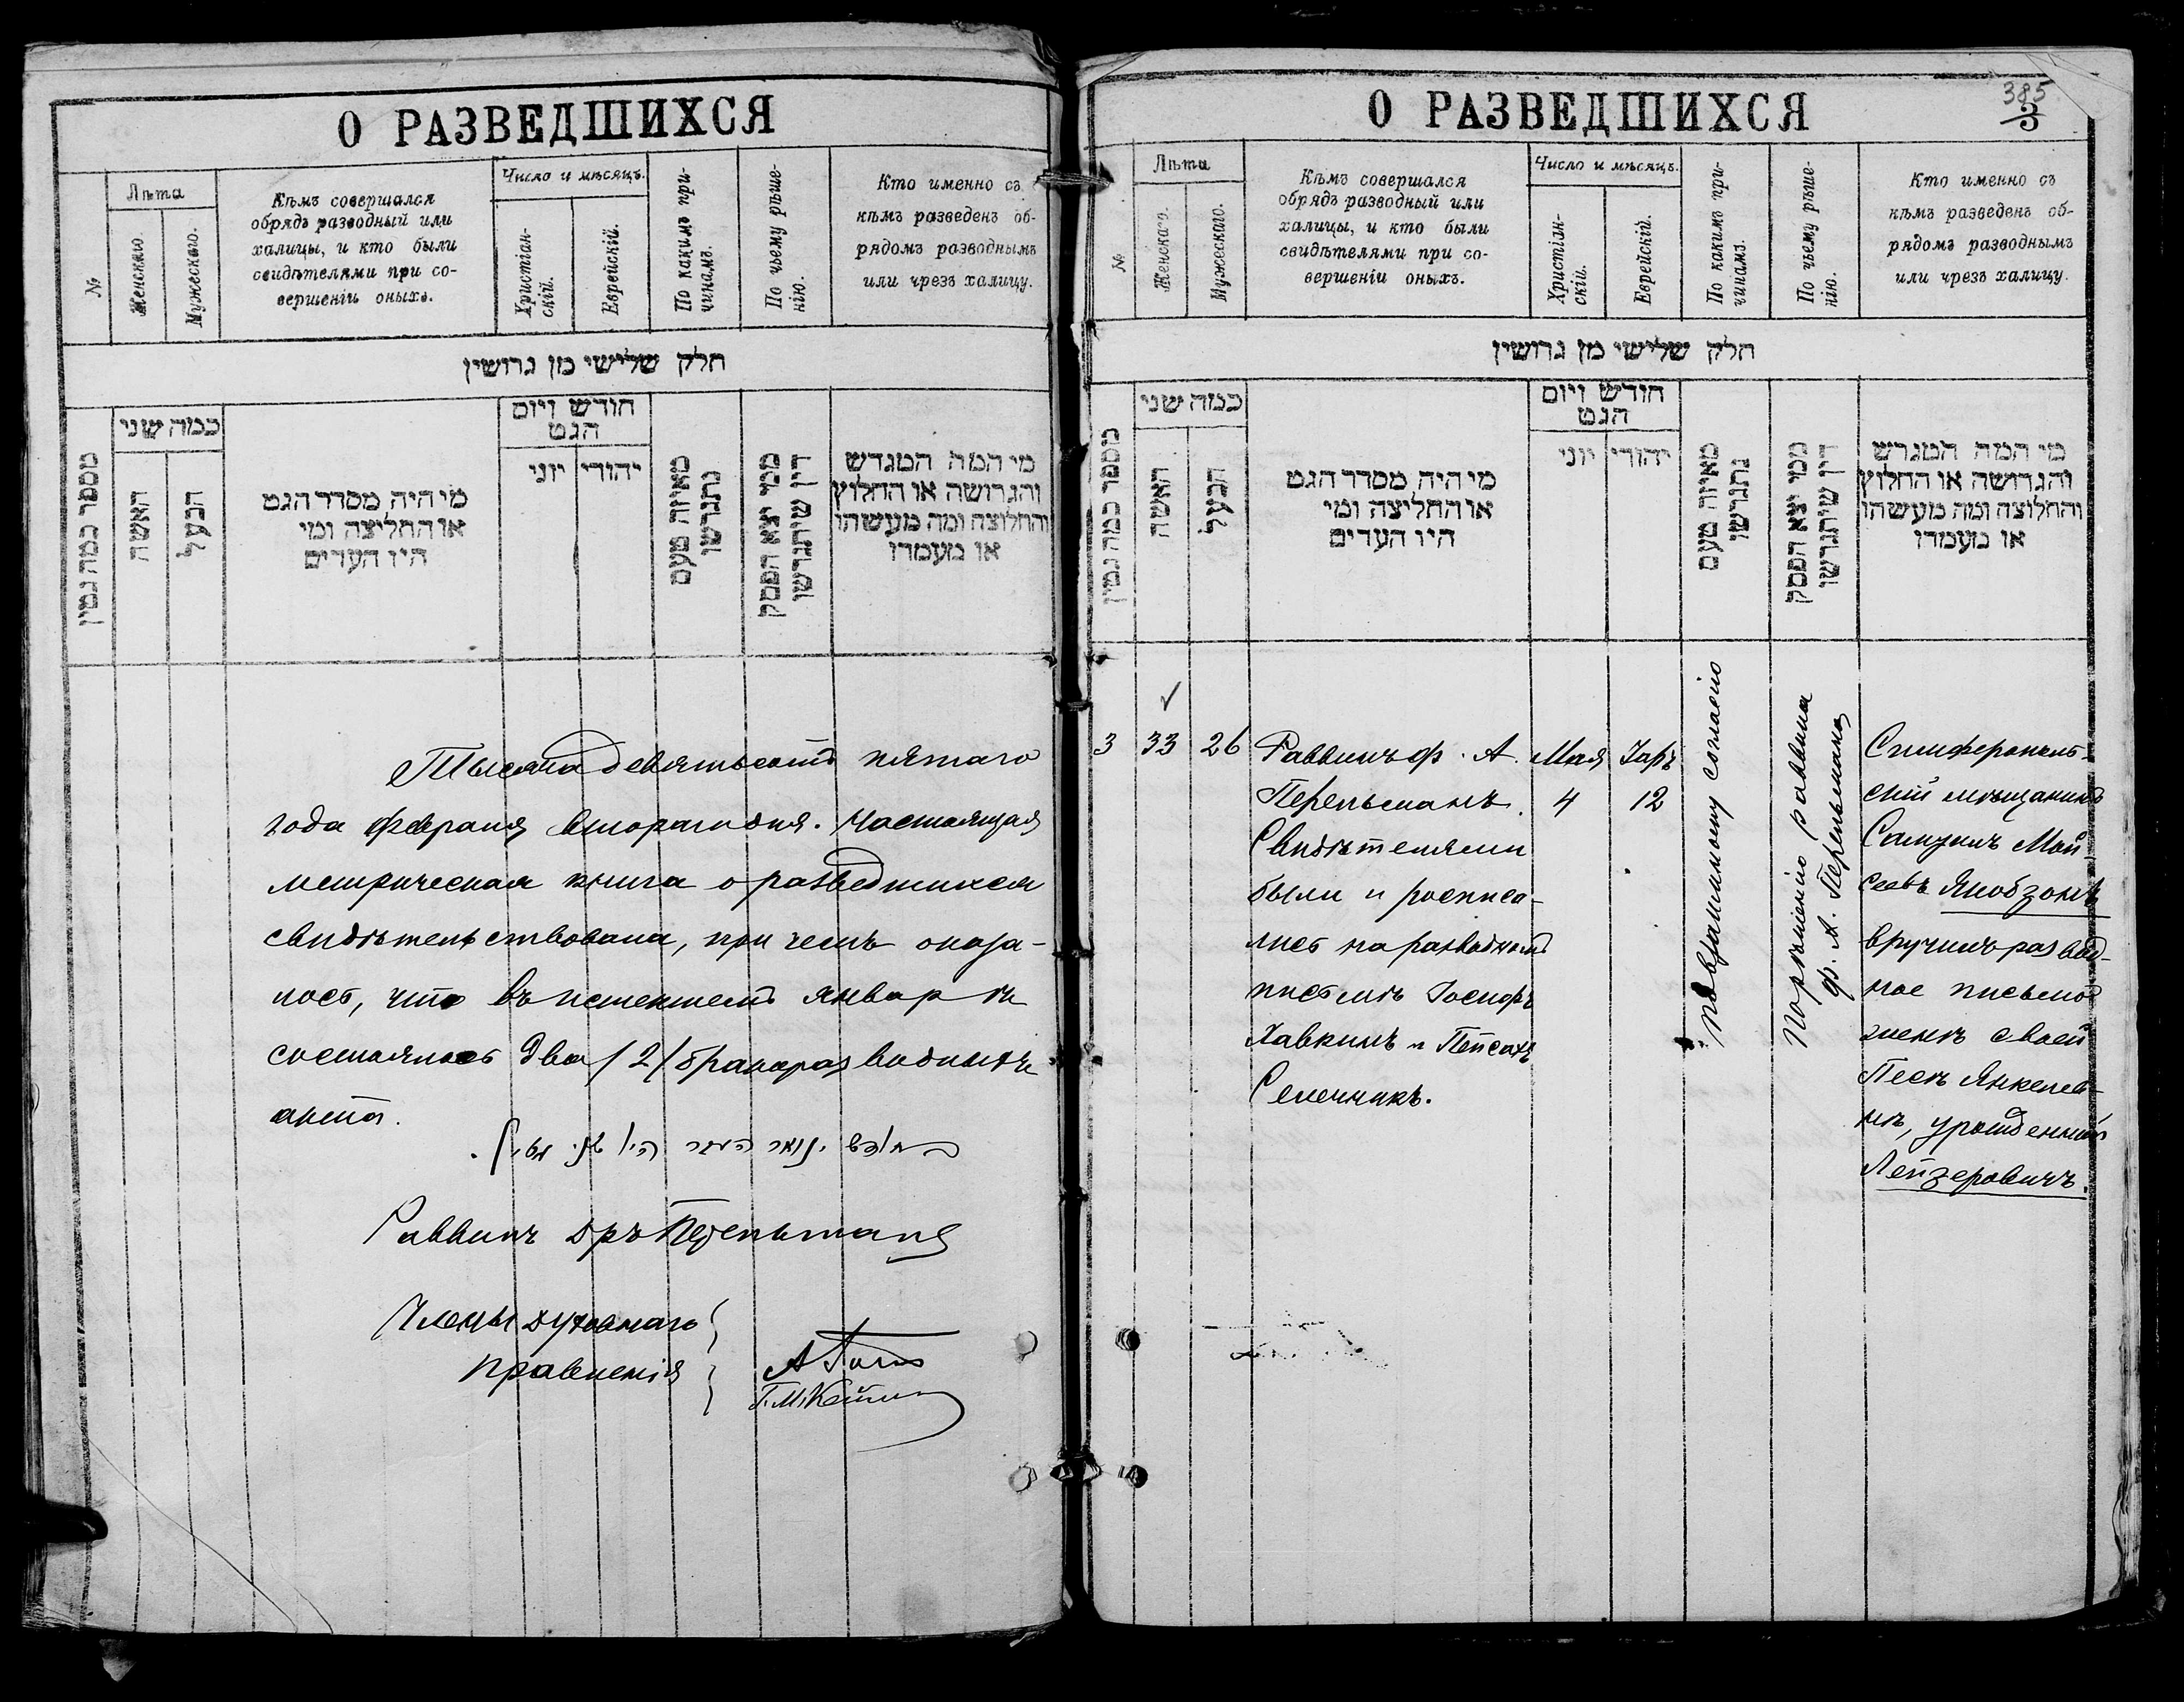 О РАЗВЕДШИХСЯ
№
Лѣта
Женскаго.
Мужескаго.
Кѣмъ совершался
обрядъ разводный или
халицы, и кто были
свидѣтелями при со-
вершеніи оныхъ.
Число и мѣсяцъ.
Христіан-
скій.
Еврейскій.
По какимъ при-
чинамъ.
По чьему рѣше-
нію.
Кто именно съ
кѣмъ разведенъ об-
рядомъ разводнымъ
или чрезъ халицу.
חלק שלישי מן גרושין
מספר כמה גטין
כמה שני
האשה
הבעל
מי היה מסדר הגט
או החליצה ומי
היו העדים
חודש ויום
הגט
יוני
יהודי
מאיזה טעם
נתגרשו
ממי יצא הפסק
דין שיתגרשו
מי המה המגרש
והגרושה או החלוץ
והחלוצה ומה מעשהו
או מעמדו
Тысяча девятьсотъ пятаго
года февраля второго дня. Настоящая
метрическая книга о разведшихся
свидѣтельствована, при чемъ оказа-
лось, что въ истекшемъ январѣ
состоялось два /2/ бракоразводныхъ
акта.
ינואר העבר היו שני גטין.
Раввинъ д ръ Перельманъ
Члены духовнаго
правленія
О РАЗВЕДШИХСЯ
385
3
№
Лѣта
Женскаго.
Мужескаго.
Кѣмъ совершался
обрядъ разводный или
халицы, и кто были
свидѣтелями при со-
вершеніи оныхъ.
Число и мѣсяцъ.
Христіан-
скій.
Еврейскій.
По какимъ при-
чинамъ.
По чьему рѣше-
нію.
Кто именно съ
кѣмъ разведенъ об-
рядомъ разводнымъ
или чрезъ халицу.
חלק שלישי מן גרושין
מספר כמה גטין
כמה שני
האשה
הבעל
מי היה מסדר הגט
או החליצה ומי
היו העדים
חודש ויום
הגט
יוני
יהודי
מאיזה טעם
נתגרשו
ממי יצא הפסק
דין שיתגרשו
מי המה המגרש
והגרושה או החלוץ
והחלוצה ומה מעשהו
או מעמדו
3
33
26
Раввинъ Ф. А.
Перельманъ.
Свидѣтелями
были и росписа-
лись на разводномъ
письмѣ Іосифъ
Хавкинъ и Пейсахъ
Селечникъ.
Мая
4
Іаръ
12
По взаимному согласію
По рѣшенію раввина
Ф. А. Перельмана
Симферополь-
скій мѣщанинъ
Самуилъ Мой-
сеевъ Якобзонъ
вручилъ развод-
ное письмо
женѣ своей
Песѣ Янкелев-
нѣ, урожденной
Лейзеровичъ.